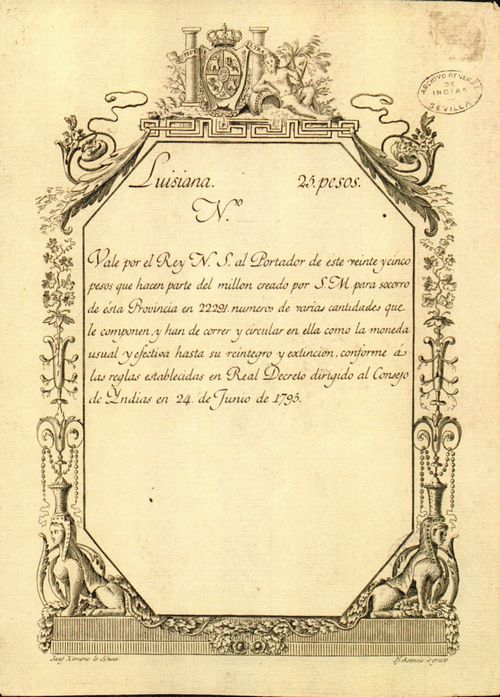 ARCHIVO GENERAL
DE
INDIAS
SEVILLA
Luisiana. 25. pesos.
N.º
Vale por el Rey N. S. al Portador de este veinte y cinco
pesos que hacen parte del millon creado por S. M. para socorro
de ésta Provincia en 22291. numeros de varias cantidades que
le componen, y han de correr y circular en ella como la moneda
usual y efectiva hasta su reintegro y extincion, conforme á
las reglas establecidas en Real Decreto dirigido al Consejo
de Yndias en 24. de Junio de 1795.
Ximeno lo dibuxó.
Asensio lo grabó